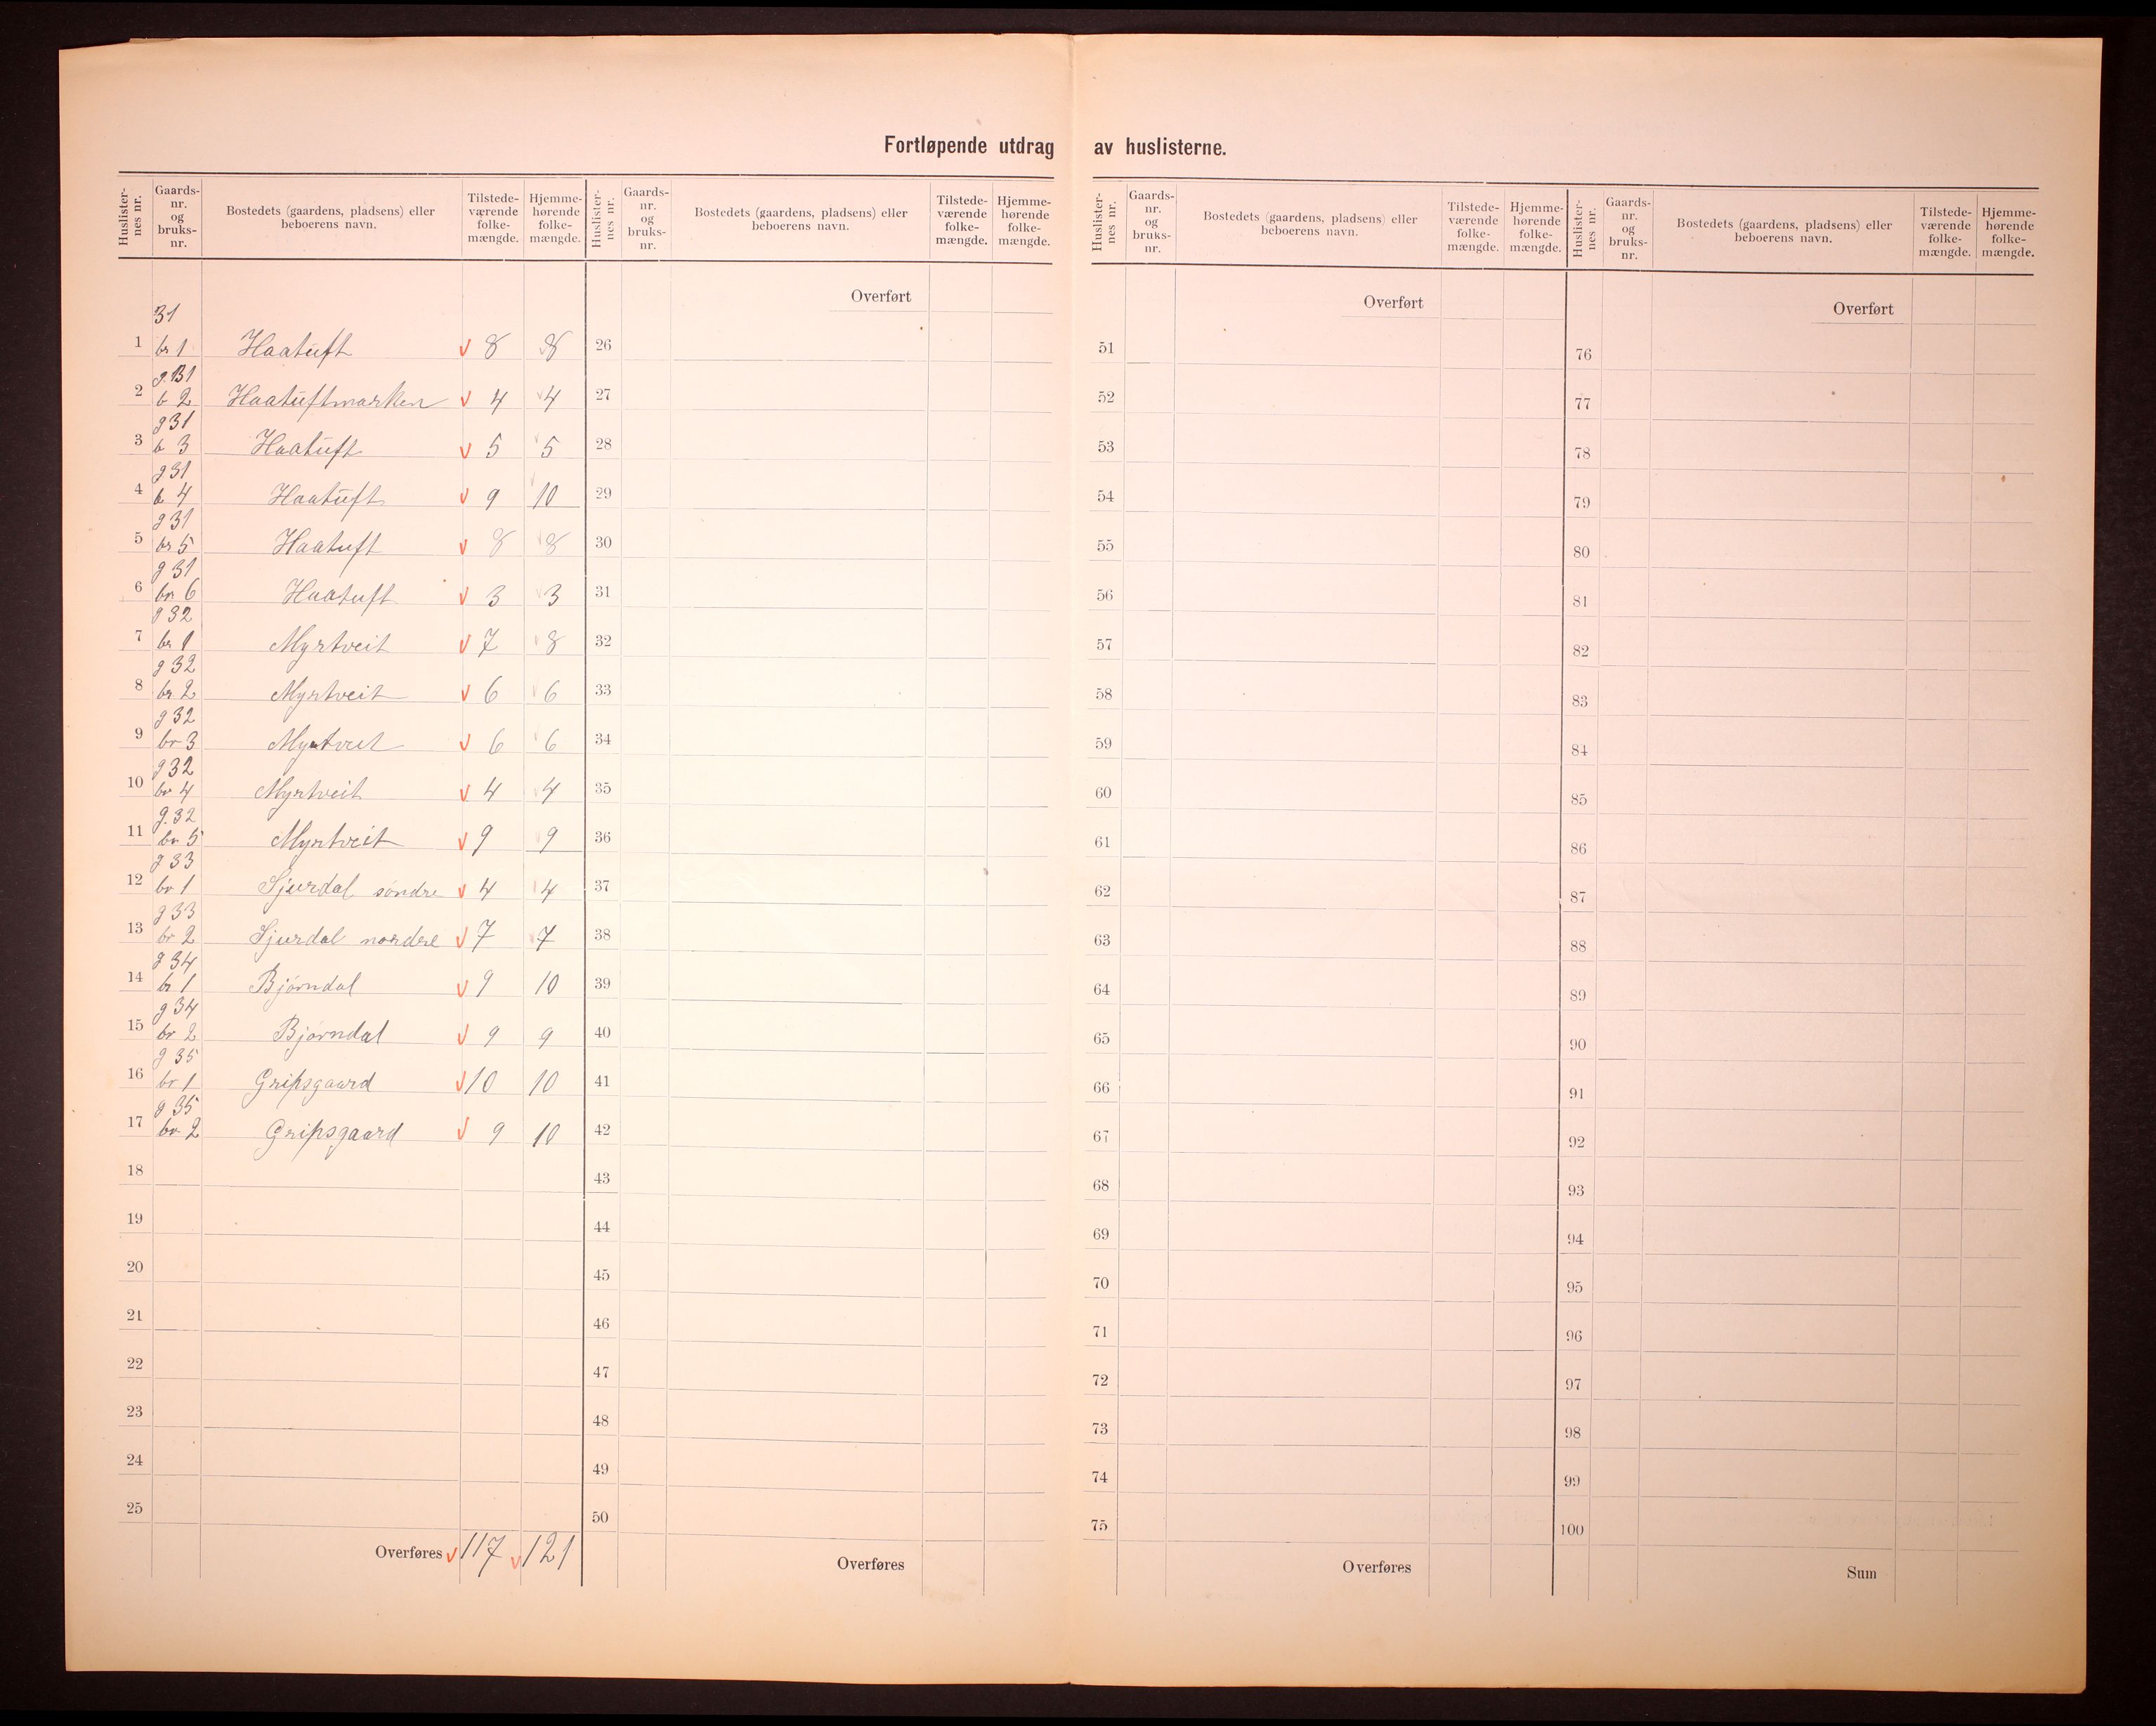 Fortløpende utdrag av huslisterne.
Huslister-nes nr. Gaards-nr. og bruks-nr. Bostedets (gaardens, pladsens) eller beboerens navn. Tilstede-værende folke-mængde. Hjemme-hørende folke-mængde. Huslister-nes nr. Gaards-nr. og bruks-nr. Bostedets (gaardens, pladsens) eller beboerens navn. Tilstede-værende folke-mængde. Hjemme-hørende folke-mængde. Huslister-nes nr. Gaards-nr. og bruks-nr. Bostedets (gaardens, pladsens) eller beboerens navn. Tilstede-værende folke-mængde. Hjemme-hørende folke-mængde. Huslister-nes nr. Gaards-nr. og bruks-nr. Bostedets (gaardens, pladsens) eller beboerens navn. Tilstede-værende folke-mængde. Hjemme-hørende folke-mængde.
Overført Overført Overført
31
1 br 1 Haatuft 8 8 26 51 76
g. 31
2 b 2 Haatuftmarken 4 4 27 52 77
g 31
3 b 3 Haatuft 5 5 28 53 78
g 31
4 b 4 Haatuft 9 10 29 54 79
g 31
5 br 5 Haatuft 8 8 30 55 80
g 31
6 br 6 Haatuft 3 3 31 56 81
g 32
7 br 1 Myrtveit 7 8 32 57 82
g 32
8 br 2 Myrtveit 6 6 33 58 83
g 32
9 br 3 Myrtveit 6 6 34 59 84
g 32
10 br 4 Myrtveit 4 4 35 60 85
g. 32
11 br 5 Myrtveit 9 9 36 61 86
g 33
12 br 1 Sjurdal søndre 4 4 37 62 87
g 33
13 br 2 Sjurdal nordre 7 7 38 63 88
g 34
14 br 1 Bjørndal 9 10 39 64 89
g 34
15 br 2 Bjørndal 9 9 40 65 90
g 35
16 br 1 Gripsgaard 10 10 41 66 91
g 35
17 br 2 Gripsgaard 9 10 42 67 92
18 43 68 93
19 44 69 94
20 45 70 95
21 46 71 96
22 47 72 97
23 48 73 98
24 49 74 99
25 50 75 100
Overføres 117 121 Overføres Overføres Sum